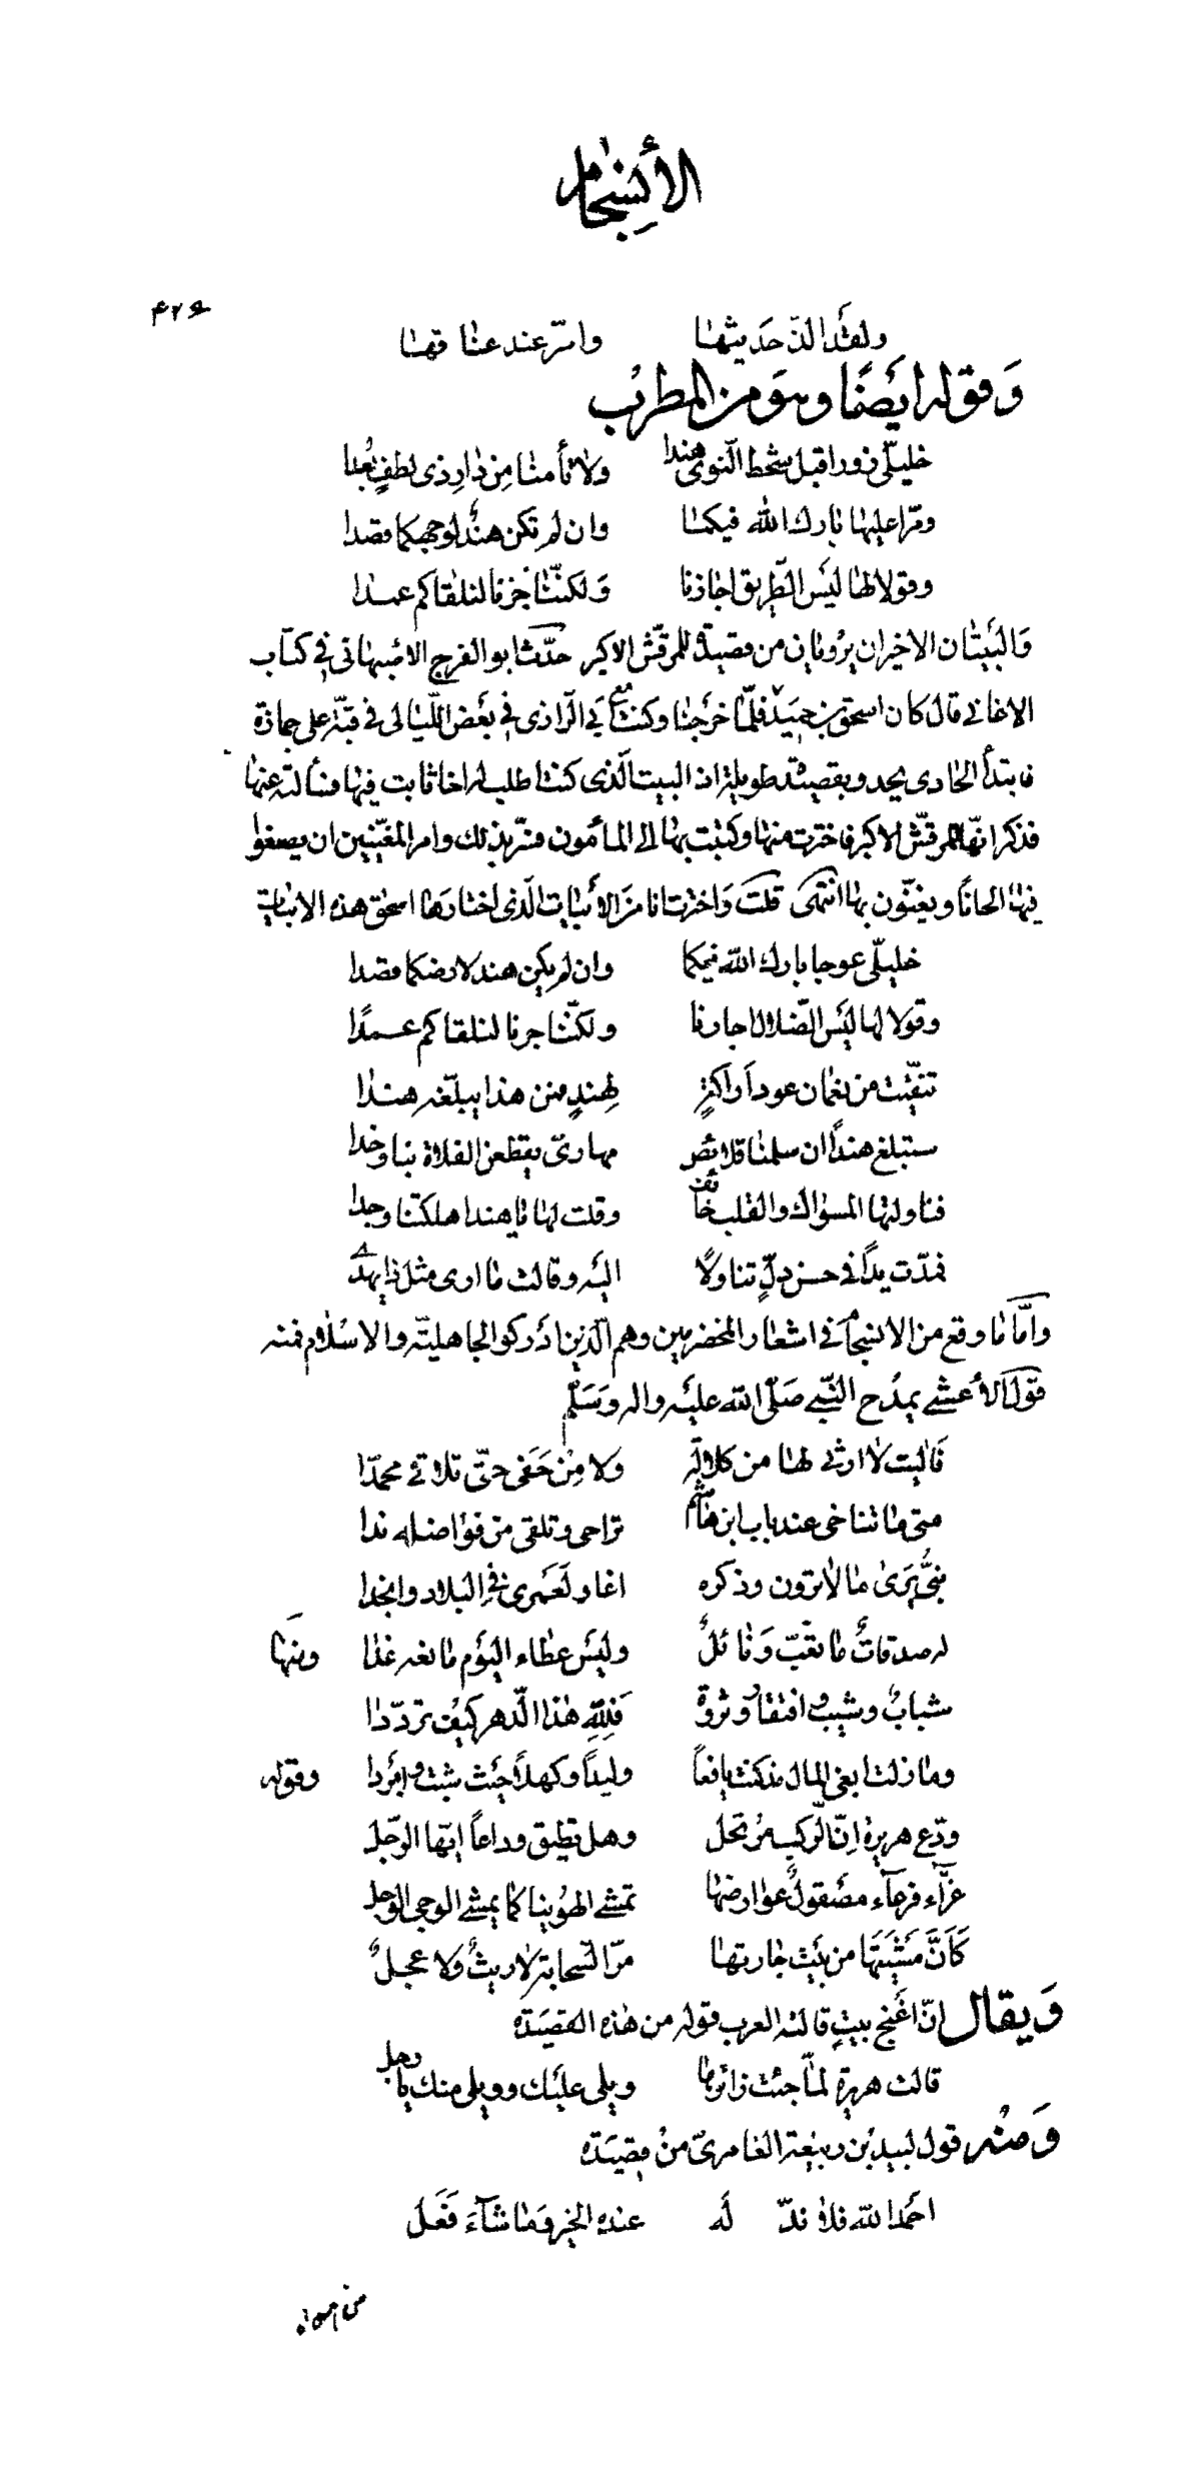 الأنسِجام
۴۲۶
ولقد الذّ حَديثها وأسرّ عند عناقها
وَقوله ايضًا وهو من المطرب
خليلّى زورا قبل شحط النوى هندا ولا تأمنا مِن دارِ ذى لطفٍ بُعدا
ومرّا عليها بارك الله فيكما وان لم تكن هندٌ لوجهكما قصدا
وقولا لها ليس الطّريق اجازنا وَلكنّنا جزنا لنلقاكم عمدا
وَالبَيتان الاخيران يرُويان من قصيدة للمرقّش الاكبر حدّث ابو الفرج الاصبهانى فى كتاب
الاغانى قال كان اسحق بن حميد فلمّا خرَجنا وكنت مع الرازى فى بعَض اللّيالى فى قبّة على جمازة
فابتدأ الحادى يحدو بقصيدة طويلة اذ البيت الّذى كنت اطلب له اخا ثابت فيها فسألته عنها
فذكر انّها للمرقّش الاكبر فاخترت منها وكتبت بها الى المأمون فسرّ بذلك وامر المغنّيين ان يصنعوا
فيها الحانًا ويغنّون بها انتهى قلت وَاخترت انا من الأبيات الّذى اختارها اسحق هذه الابيات
خليلّى عوجا بارك الله فيكما وان لم يكن هند لارضكما قصدا
وقولا لها ليَس الضّلال اجارنا ولكنّنا جرنا لنلقاكم عمدًا
تنقّيت من نعمان عوداَ واكثرٍ لهندٍ فمن هذا يبلّغه هندا
ستبلغ هنداً ان سلمنا قلائص مهارىّ يقطعن الفلاة بنا وخدا
فناولتها المسواك والقلب خائف وقلت لها يا هند اهلكتنا وجدا
فمدّت يداً فى حسن دلٍّ تناولًا اليَه وقالت ما ارى مثل ذا يهدَى
وامّا ما وقع من الانسجام فى اشعار المخضرمين وهم الّذين ادَركوا الجاهليّة والاسلام فمنه
قول الأعشى يمدُح النبّى صَلّى الله عليَه واله وسَلّم
فَاليت لا ارثى لها من كلالةٍ ولا مِن حَفى حتّى تلاقى محمدّا
متى ما تناخى عند باب ابن هاشم تراحى وتلقى من فواضله ندا
نبىٌّ يَرَى ما لا ترون وذكره اغار لَعَمرى فى البلاد وانجدا
له صدقاتٌ ما تغبّ وَنائلٌ وليَس عطاء اليوَم مانعه غدا ومنها
شبابٌ وشيبٌ وافتقارٌ وثروةٌ فَلِلّهِ هذا الدّهر كيف تردّدا
وما زلت ابغى المال مذ كنت يافعاً وليداً وكهلاً حيَث شبت وامَردا وقوله
ودّع هريرة اِنّ الرّكب مرُتحل وهل تطيق وداعاً ايّها الرّجل
غرّاء فرعاء مصَقولٌ عوارضها تمشى الهوُينا كما يمشى الوجى الوحل
كَأنَّ مَشيَتَها من بيَت جارتها مرّ السّحابة لا ريثٌ ولا عجلٌ
وَيقال انّ اغَنج بيتٍ قالته العرب قوله من هذه القصيَدة
قالت هريرة لمّا جئت زائرها ويلى عليَك وويلى منك يا رجل
وَمنُه قول لبيد بُن ربيعة العامرىّ منُ قصيَدة
احمَد الله فلا ندّ لَه عنده الخير وَما شآءَ فَعَل